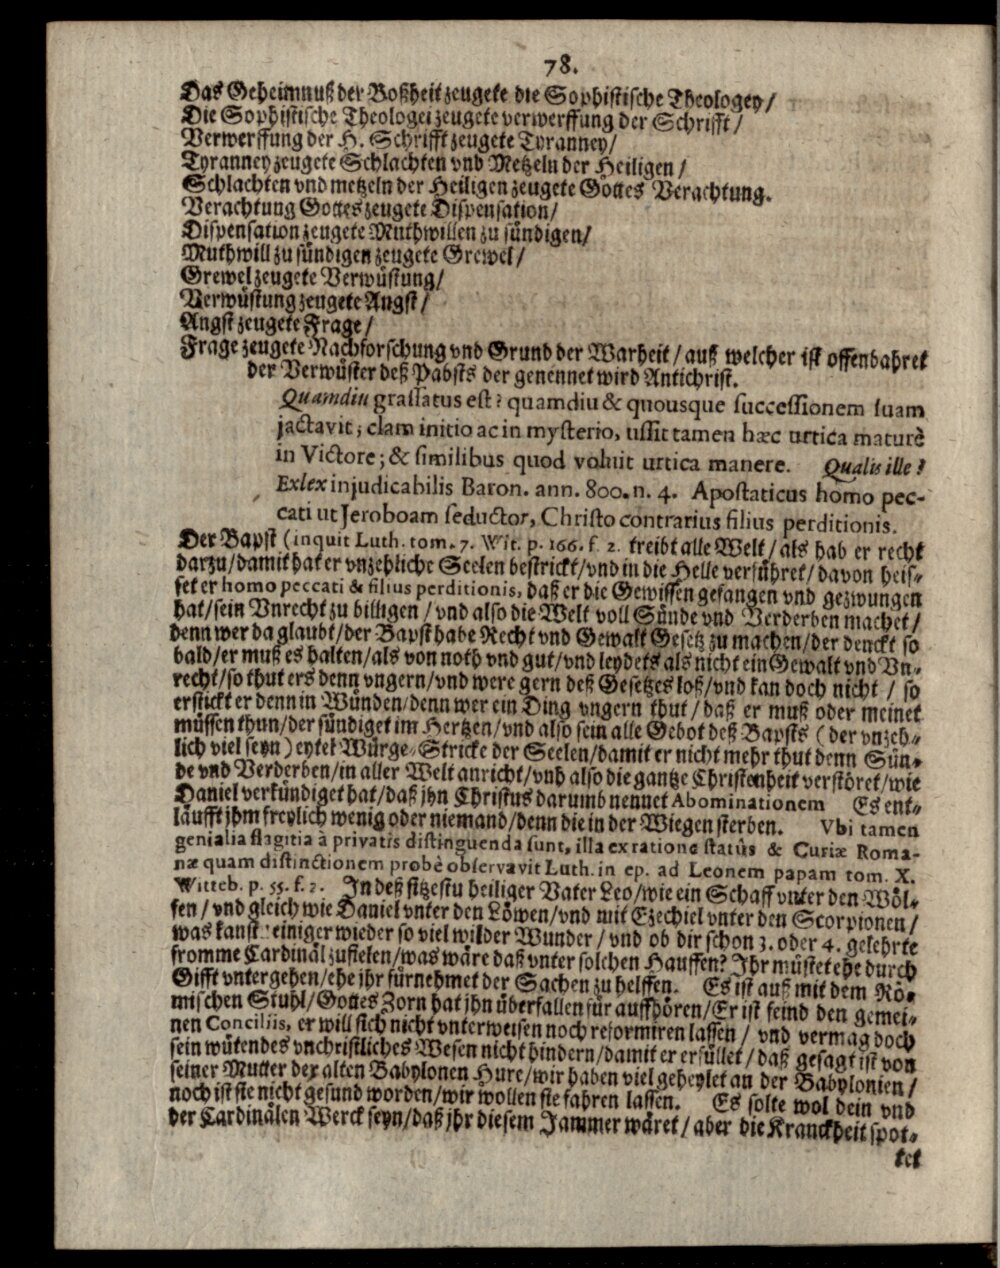 78.
Das Geheimnuß der Boßheit zeugete die Sophistische Theologey/
Die Sophistische Theologei zeugete verwerffung der Schrifft/
Verwerffung der H. Schrifft zeugete Tyranney/
Tyranney zeugete Schlachten vnd Metzeln der Heiligen/
Schlachten vnd metzeln der Heiligen zeugete Gottes Verachtung.
Verachtung Gottes zeugete Dispensation/
Dispensation zeugete Muthwillen zu sündigen/
Muthwill zu sündigen zeugete Grewel/
Grewel zeugete Verwüstung/
Verwüstung zeugete Angst/
Angst zeugete Frage/
Frage zeugete Nachforschung vnd Grund der Warheit/auß welcher ist offenbahret
der Verwüster deß Pabsts der genennet wird Antichrist.
Quamdiu grassatus est? quamdiu & quousque successionem suam
jactavit; clam initio ac in mysterio, ussit tamen hæc urtica maturè
in Victore; & similibus quod voluit urtica manere. Qualis ille?
Exlex injudicabilis Baron. ann. 800. n. 4. Apostaticus homo pec-
cati ut Jeroboam seductor, Christo contrarius filius perditionis.
Der Bapst (inquit Luth. tom. 7. Wit. p. 166. f. 2. treibt alle Welt/als hab er recht
darzu/damit hat er vnzehliche Seelen bestrickt/vnd in die Helle verführet/davon heis-
set er homo peccati & filius perditionis, daß er die Gewissen gefangen vnd gezwungen
hat/sein Vnrecht zu billigen/vnd also die Welt voll Sünde vnd Verderben machet/
denn wer da glaubt/der Bapst habe Recht vnd Gewalt Gesetz zu machen/der denckt so
bald/er muß es halten/als von noth vnd gut/vnd leydets als nicht ein Gewalt vnd Vn-
recht/so thut ers denn vngern/vnd were gern deß Gesetzes loß/vnd kan doch nicht/so
erstickt er denn in Wünden/denn wer ein Ding vngern thut/daß er muß oder meinet
müssen thun/der sündiget im Hertzen/vnd also sein alle Gebot deß Bapsts (der vnzeh-
lich viel seyn) eytel Würge-Stricke der Seelen/damit er nicht mehr thut denn Sün-
de vnd Verderben/in aller Welt anricht/vnh also die gantze Christenheit verstöret/wie
Daniel verkündiget hat/daß jhn Christus darumb nennet Abominationem Es ent-
läufft jhm freylich wenig oder niemand/denn die in der Wiegen sterben. Vbi tamen
genialia flagitia à privatis distinguenda sunt, illa ex ratione statûs & Curiæ Roma-
næ quam distinctionem probè observavit Luth. in ep. ad Leonem papam tom. X.
Witteb. p. 55. f. 2. In deß sitzestu heiliger Vater Leo/wie ein Schaff vnter den Wöl-
fen/vnd gleich wie Daniel vnter den Löwen/vnd mit Ezechiel vnter den Scorpionen/
was kanstu einiger wieder so viel wilder Wunder/vnd ob dir schon 3. oder 4. gelehrte
fromme Cardinäl zufielen/was wäre daß vnter solchen Hauffen? Jhr müstet ehe durch
Gifft vntergehen/ehe jhr fürnehmet der Sachen zu helffen. Es ist auß mit dem Rö-
mischen Stuhl/Gottes Zorn hat jhn überfallen für auffhören/Er ist feind den gemei-
nen Conciliis, er will sich nicht vnterweisen noch reformiren lassen/vnd vermag doch
sein wütendes vnchristliches Wesen nicht hindern/damit er erfüllet/daß gesagt ist von
seiner Mutter der alten Babylonen Hure/wir haben viel geheylet an der Babylonien/
noch ist sie nicht gesund worden/wir wollen sie fahren lassen. Es solte wol dein vnd
der Cardinälen Werck seyn/daß jhr diesem Jammer wäret/aber die Kranckheit spot-
tet